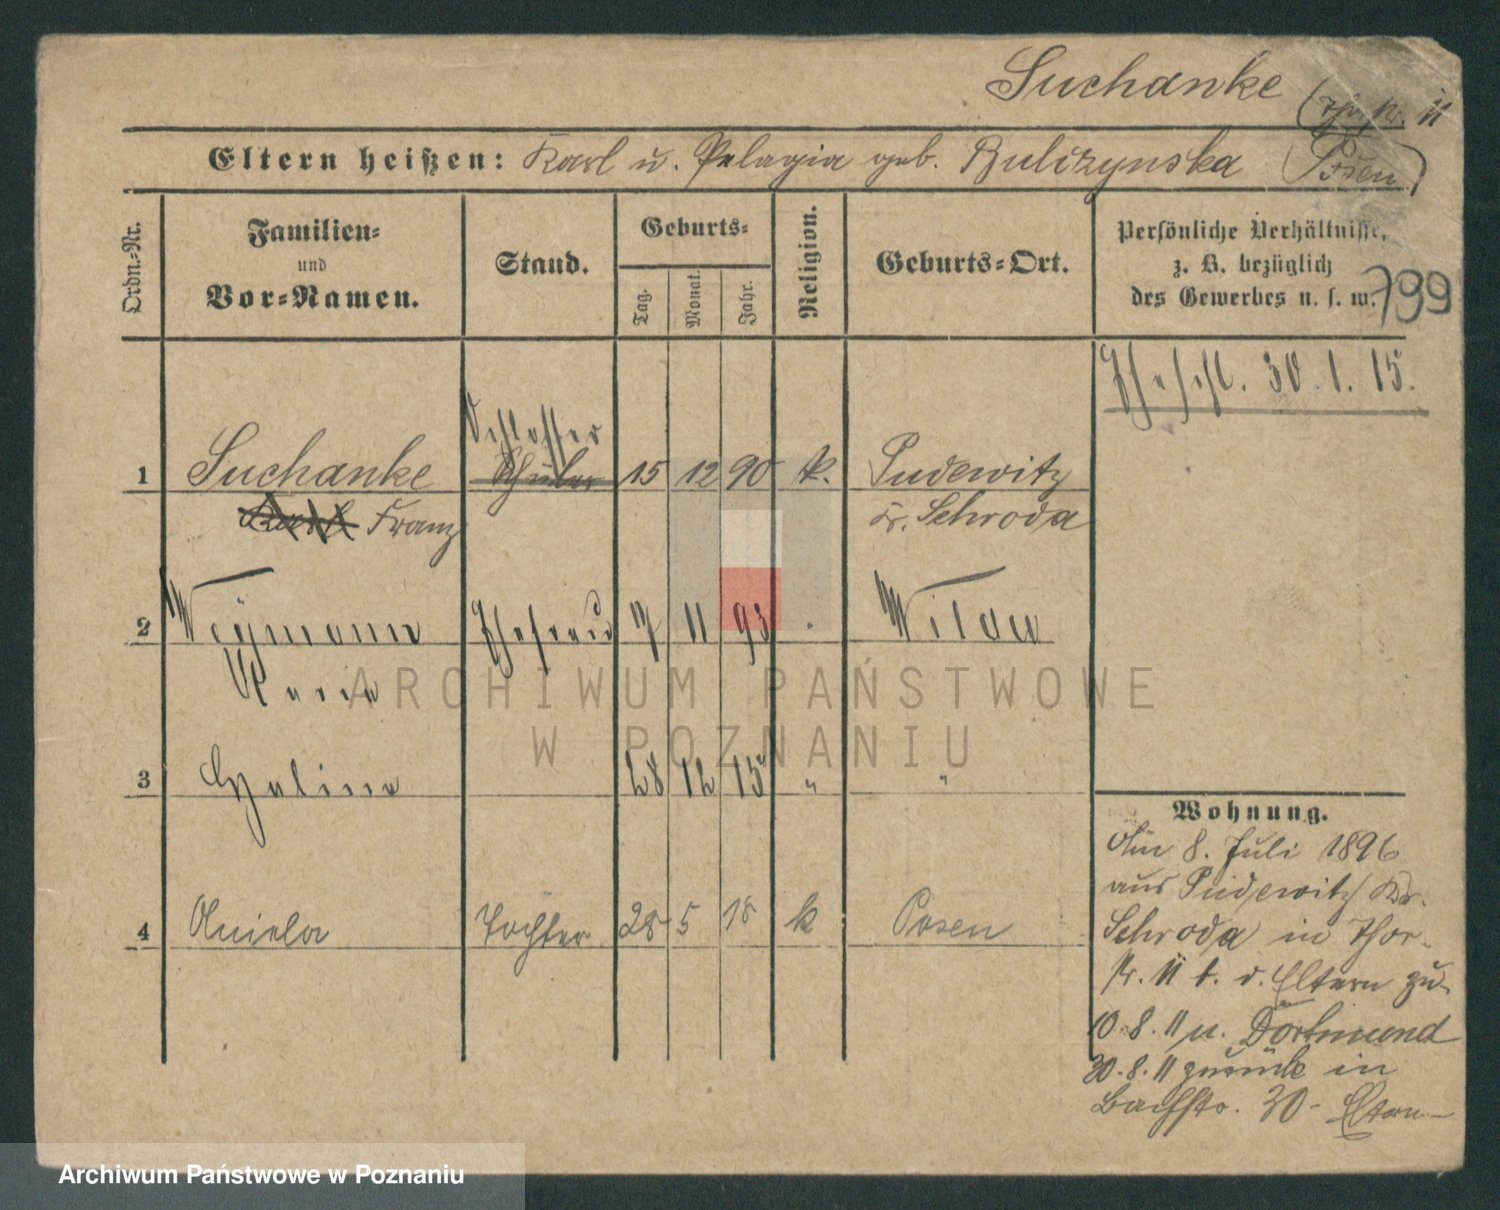 Suchanke
(Thorstr. 11
Posen)
Eltern heißen: Karl u. Pelagia geb. Bulizynska
Ordn.-Nr.
Familien-
und
Vor-Namen.
Stand.
Geburts-
Tag.
Monat.
Jahr.
Religion.
Geburts-Ort.
Persönliche Verhältnisse,
z. B. bezüglich
des Gewerbes u. s. w.
799
Eheschl. 30.1.15.
Schlosser
1 Suchanke Schüler 15 12 90 k. Pudewitz
Franz Kr. Schroda
2 Weymann Ehefrau 17 11 93 " Wilda
Maria
3 Halina 28 12 15 " "
4 Aniela Tochter 28 5 18 k Posen
Wohnung.
Am 8. Juli 1896
aus Pudewitz Kr.
Schroda in Thor-
str. 11 b. d. Eltern zu
10.8.11 n. Dortmund
30.8.11 zurück in
Bachstr. 30 - Eltern -
ARCHIWUM PAŃSTWOWE
W POZNANIU
Archiwum Państwowe w Poznaniu